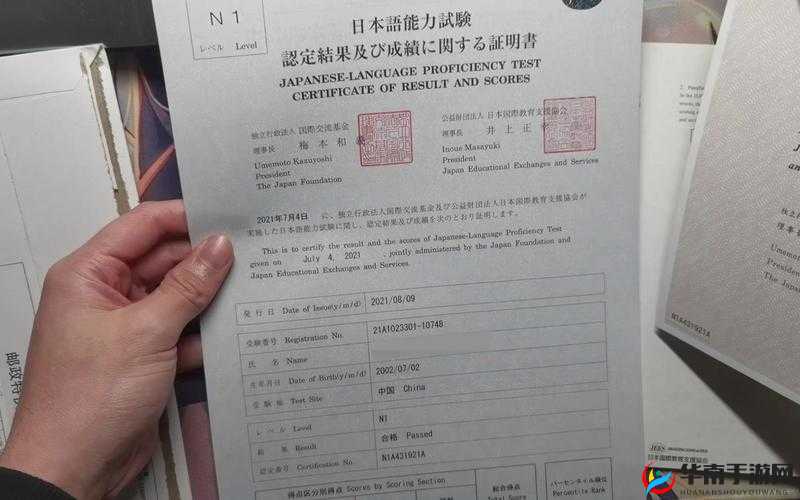 N1
レベル Level
日本語能力試験
認定結果及び成績に関する証明書
JAPANESE-LANGUAGE PROFICIENCY TEST
CERTIFICATE OF RESULT AND SCORES
独立行政法人 国際交流基金
理事長 梅本和義
Umemoto Kazuyoshi
President
The Japan Foundation
公益財団法人 日本国際教育支援協会
理事長 井上正
Inoue Masayuki
President
Japan Educational Exchanges and Services
2021年7月4日 に、独立行政法人国際交流基金及び公益財団法人日本国際教育支援協会が
実施した日本語能力試験に関し、認定結果及び成績を次のとおり証明します。
This is to certify the result and the scores of Japanese-Language Proficiency Test
given on July 4, 2021 , jointly administered by the Japan Foundation and
Japan Educational Exchanges and Services.
発行日 Date of Issue(y/m/d) 2021/08/09
受験番号 Registration No. 21A1023301-10748
氏名 Name
生年月日 Date of Birth(y/m/d) 2002/07/02
受験地 Test Site 中国 China
レベル Level N1
結果 Result 合格 Passed
認定番号 Certification No. N1A431921A
得点区分別得点 Scores by Scoring Section
総合得点
Total Score
パーセンタイル順位
Percentile Rank
N1A431921A
JEES
日本国際教育支援協会
華南手游网
HUANANSHOUYOUWANG